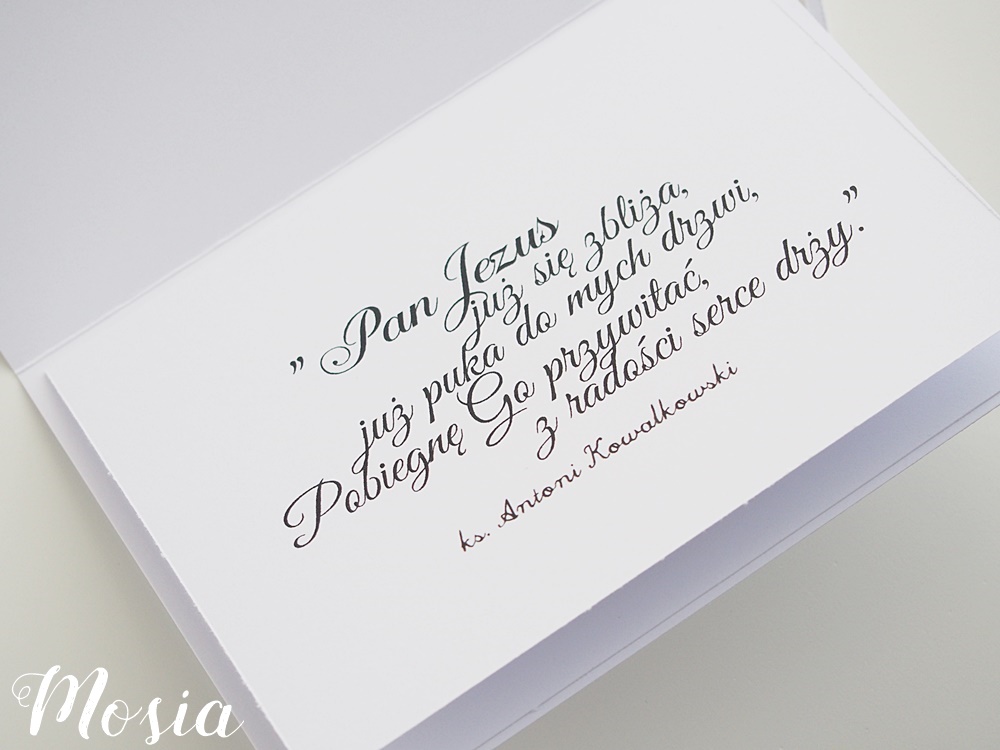 ” Pan Jezus
już się zbliża,
już puka do mych drzwi,
Pobiegnę Go przywitać,
z radości serce drży.”
ks. Antoni Kowalkowski
Mosia